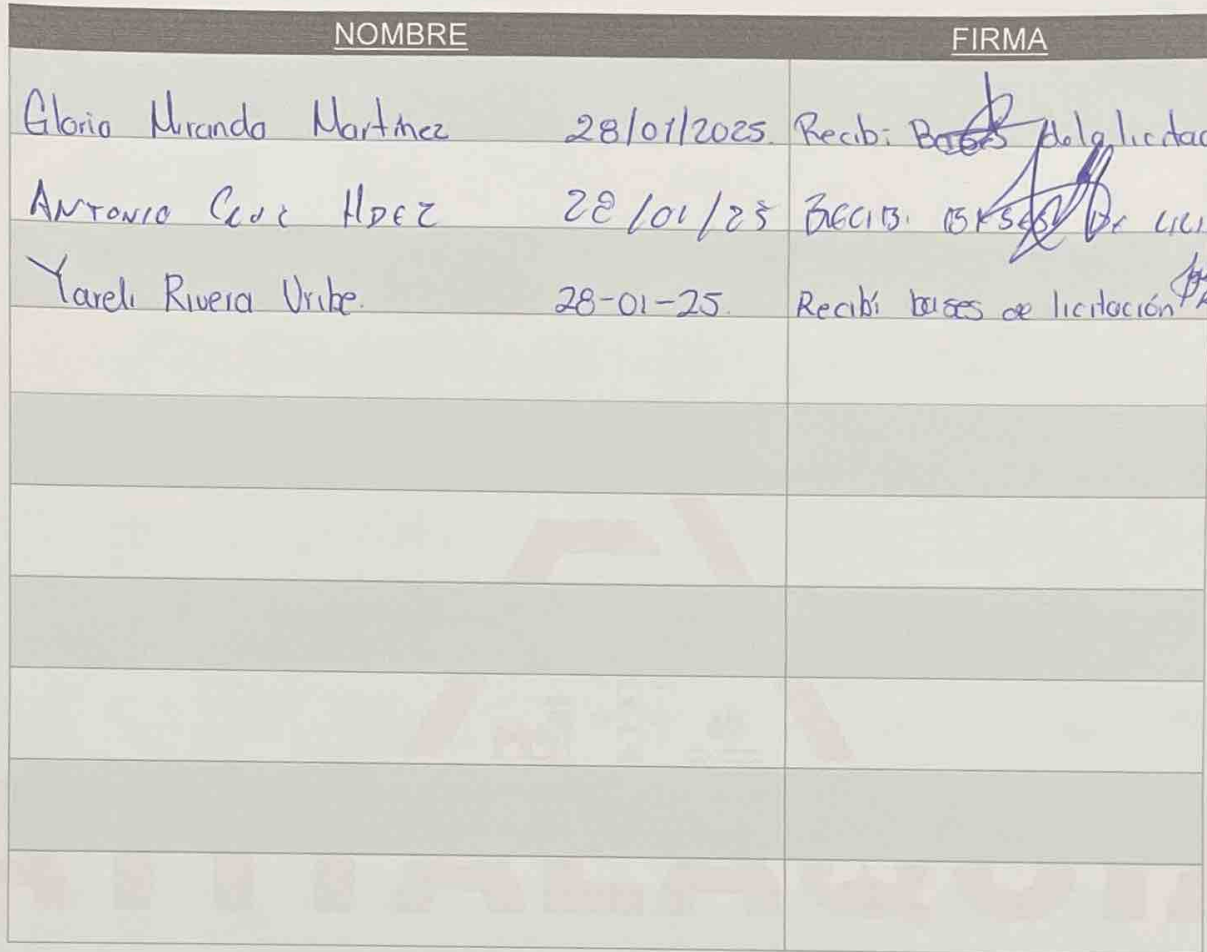 NOMBRE FIRMA
Gloria Miranda Martinez 28/01/2025. Recibi Bases de la licitac
ANTONIO CRUZ HDEZ 28/01/25 RECIBI BASES DE LICI
Yareli Rivera Uribe. 28-01-25. Recibí bases de licitación